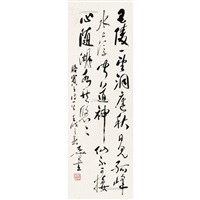 巴陵一望洞庭秋日见孤峰
水上浮闻道神仙不可接
心随湖水共悠々